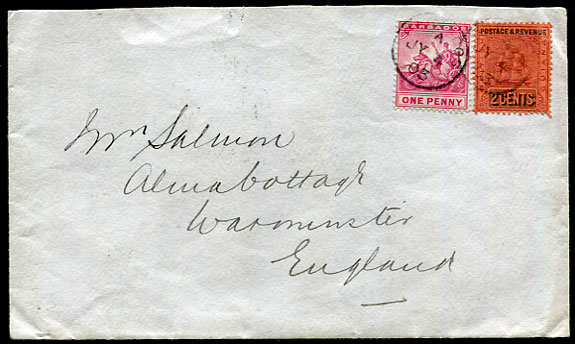 BARBADOS
ONE PENNY
POSTAGE & REVENUE
2 CENTS
A
JY 4
03
Mrs Salmon
Alma Cottage
Warminster
England